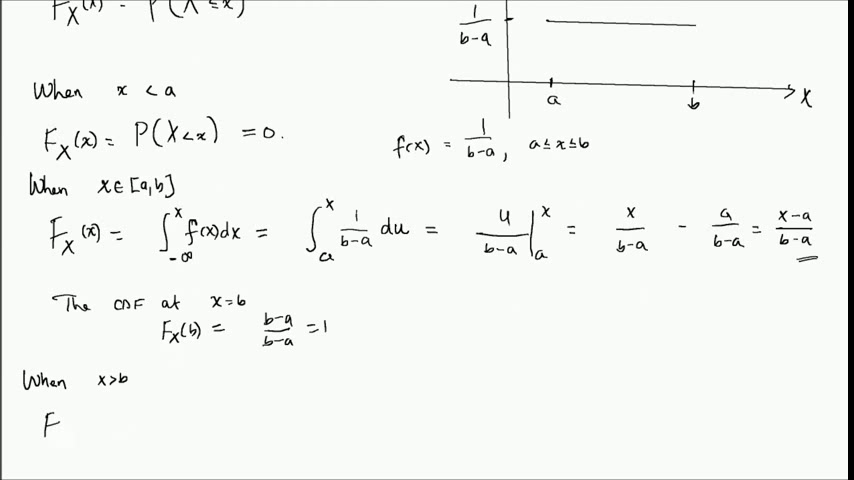 F_X(x) = P(X ≤ x)
1/(b-a)
a b X
When x < a
F_X(x) = P(X<x) = 0.
f(x) = 1/(b-a), a ≤ x ≤ b
When x ∈ [a,b]
F_X(x) = ∫_{-∞}^{x} f(x)dx = ∫_a^x 1/(b-a) du = u/(b-a) |_a^x = x/(b-a) - a/(b-a) = (x-a)/(b-a)
The CDF at x=b
F_X(b) = (b-a)/(b-a) = 1
When x>b
F